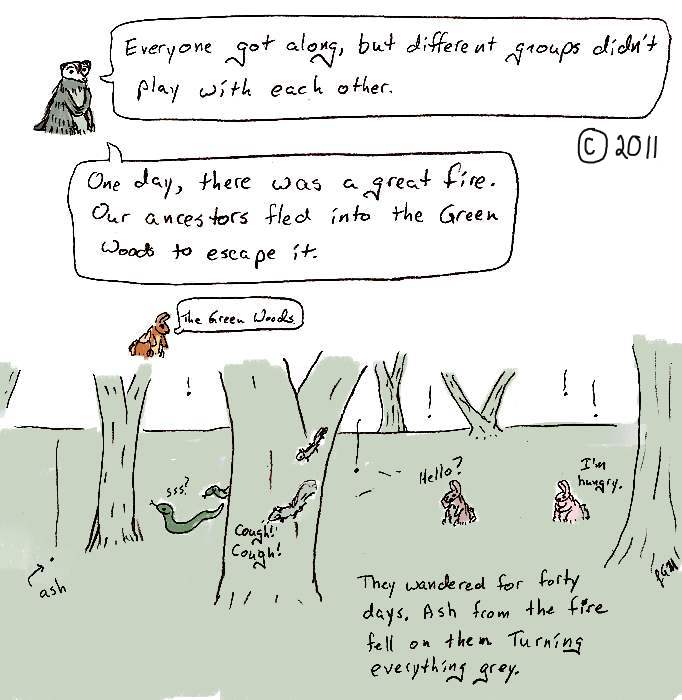 Everyone got along, but different groups didn't
play with each other.
© 2011
One day, there was a great fire.
Our ancestors fled into the Green
Woods to escape it.
The Green Woods
sss?
Hello?
I'm
hungry.
Cough!
Cough!
ash
They wandered for forty
days. Ash from the fire
fell on them Turning
everything grey.